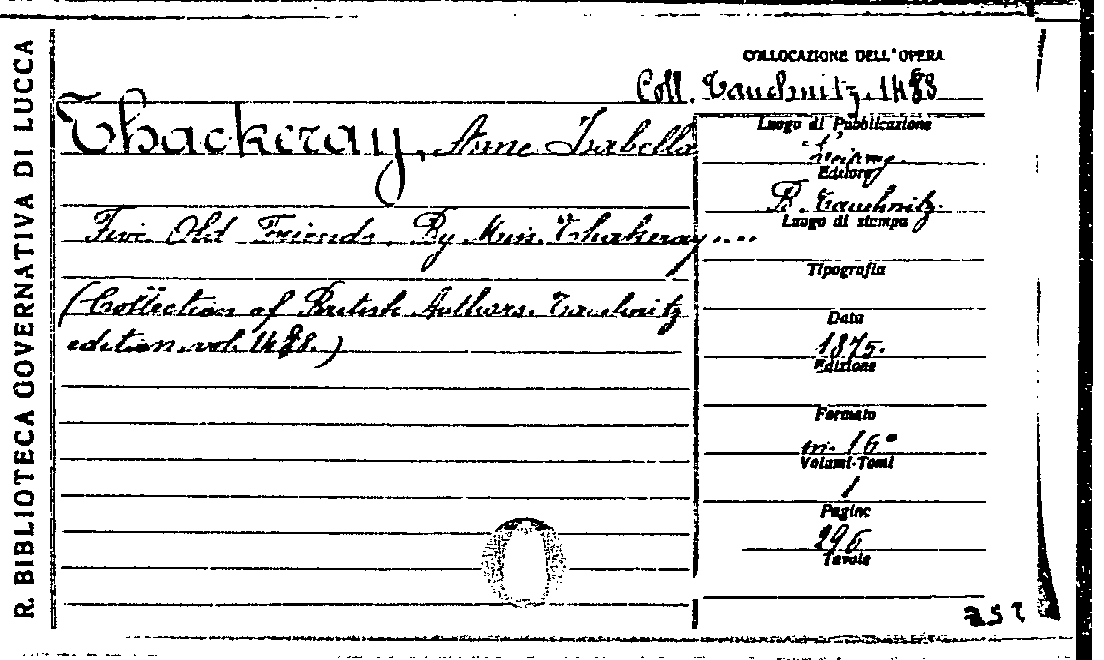 R. BIBLIOTECA GOVERNATIVA DI LUCCA
COLLOCAZIONE DELL'OPERA
Coll. Tauchnitz. 1488
Thackeray, Anne Isabella
Five Old Friends. By Miss. Thakeray....
(Collection of British Authors. Tauchnitz
edition. vol. 1488.)
Luogo di Pubblicazione
Leipzig.
Editore
B. Tauchnitz.
Luogo di stampa
Tipografia
Data
1875.
Edizione
Formato
in. 16°
Volumi-Tomi
1
Pagine
296
Tavole